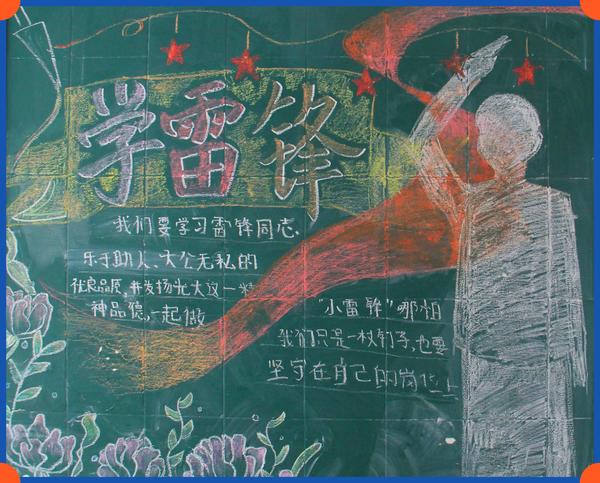 学雷锋
我们要学习雷锋同志,
乐于助人、大公无私的
优良品质,并发扬光大这一精
神品德,一起做
“小雷锋”哪怕
我们只是一枚钉子,也要
坚守在自己的岗位上